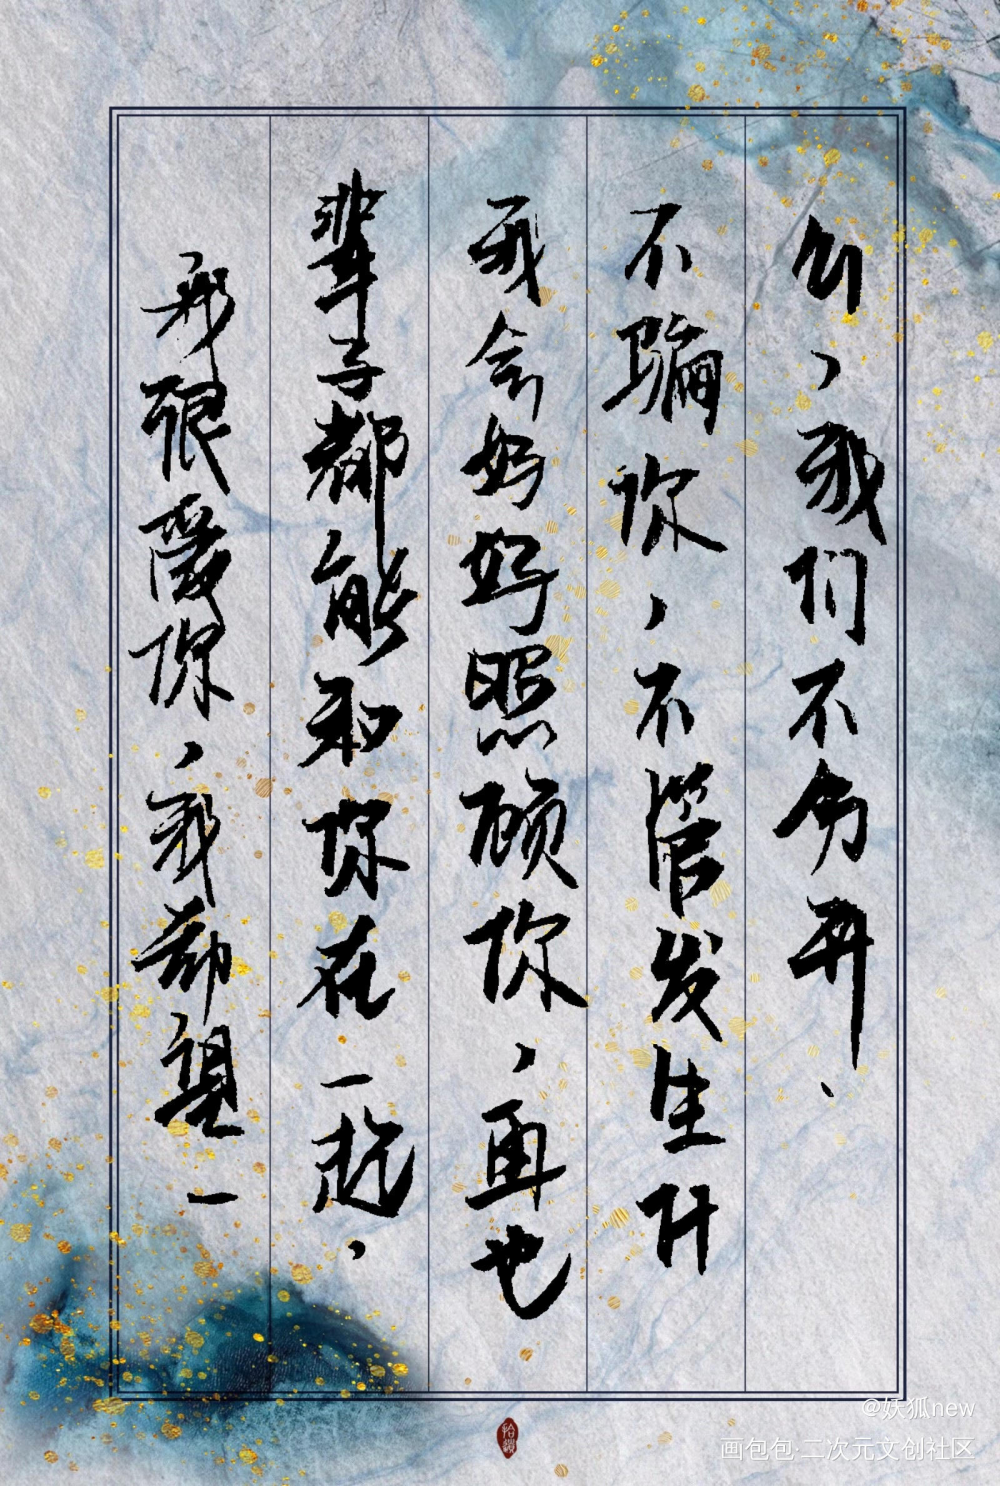 我很爱你，我希望一
辈子都能和你在一起，
我会好好照顾你，再也
不骗你，不管发生什
么，我们不分开、
@妖狐new
画包包·二次元文创社区